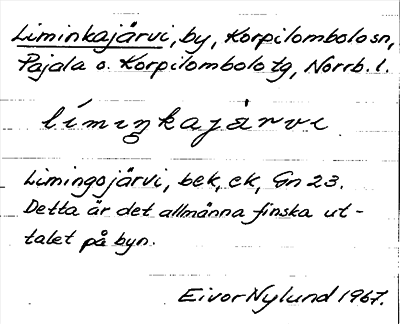 Liminkajärvi, by, Korpilombolo sn,
Pajala o. Korpilombolo tg, Norrb. l.
límiŋkajàrvi
Limingojärvi, bek, ek, Gn 23.
Detta är det allmänna finska ut-
talet på byn.
Eivor Nylund 1967.